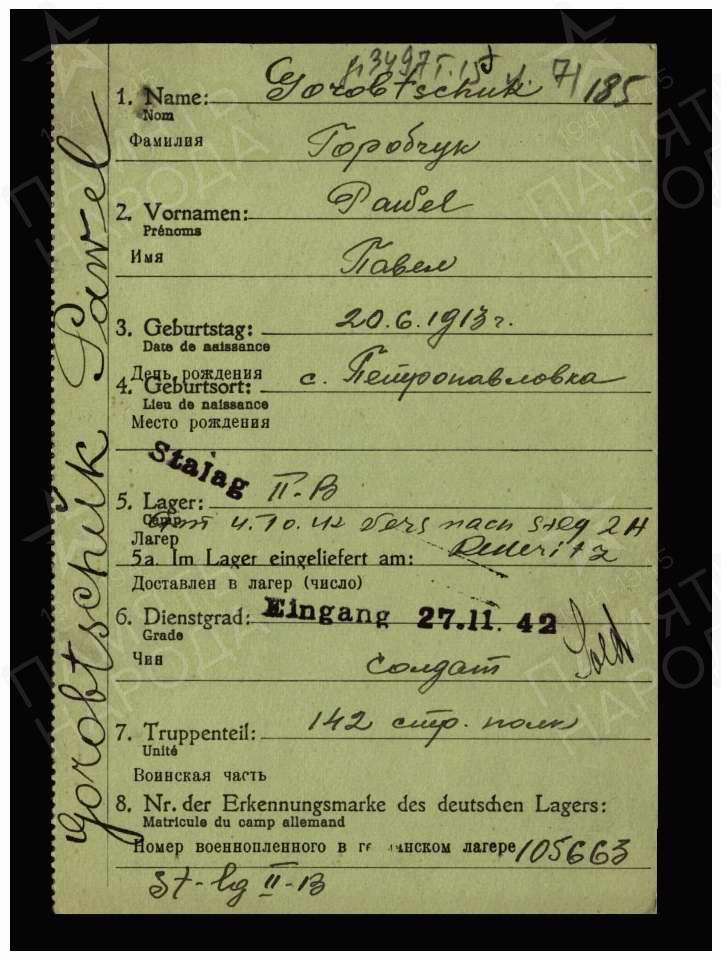 р3497 т.15
71
185
1. Name: Gorobtschuk
Nom
Фамилия Горобчук
2. Vornamen: Pawel
Prénoms
Имя Павел
3. Geburtstag: 20.6.1913 г.
Date de naissance
День рождения
4. Geburtsort: с. Петропавловка
Lieu de naissance
Место рождения
Stalag II-B
5. Lager:
Camp
am 4.10.42 vers nach Stlg 2 H
Лагер
Rederitz
5a. Im Lager eingeliefert am:
Доставлен в лагер (число)
Eingang 27.11.42
6. Dienstgrad: Sold
Grade
Чин солдат
7. Truppenteil: 142 стр. полк
Unité
Воинская часть
8. Nr. der Erkennungsmarke des deutschen Lagers:
Matricule du camp allemand
Номер военнопленного в манском лагере 105663
St-lg II-B
Gorobtschuk Pawel
ПАМЯТЬ
НАРОДА